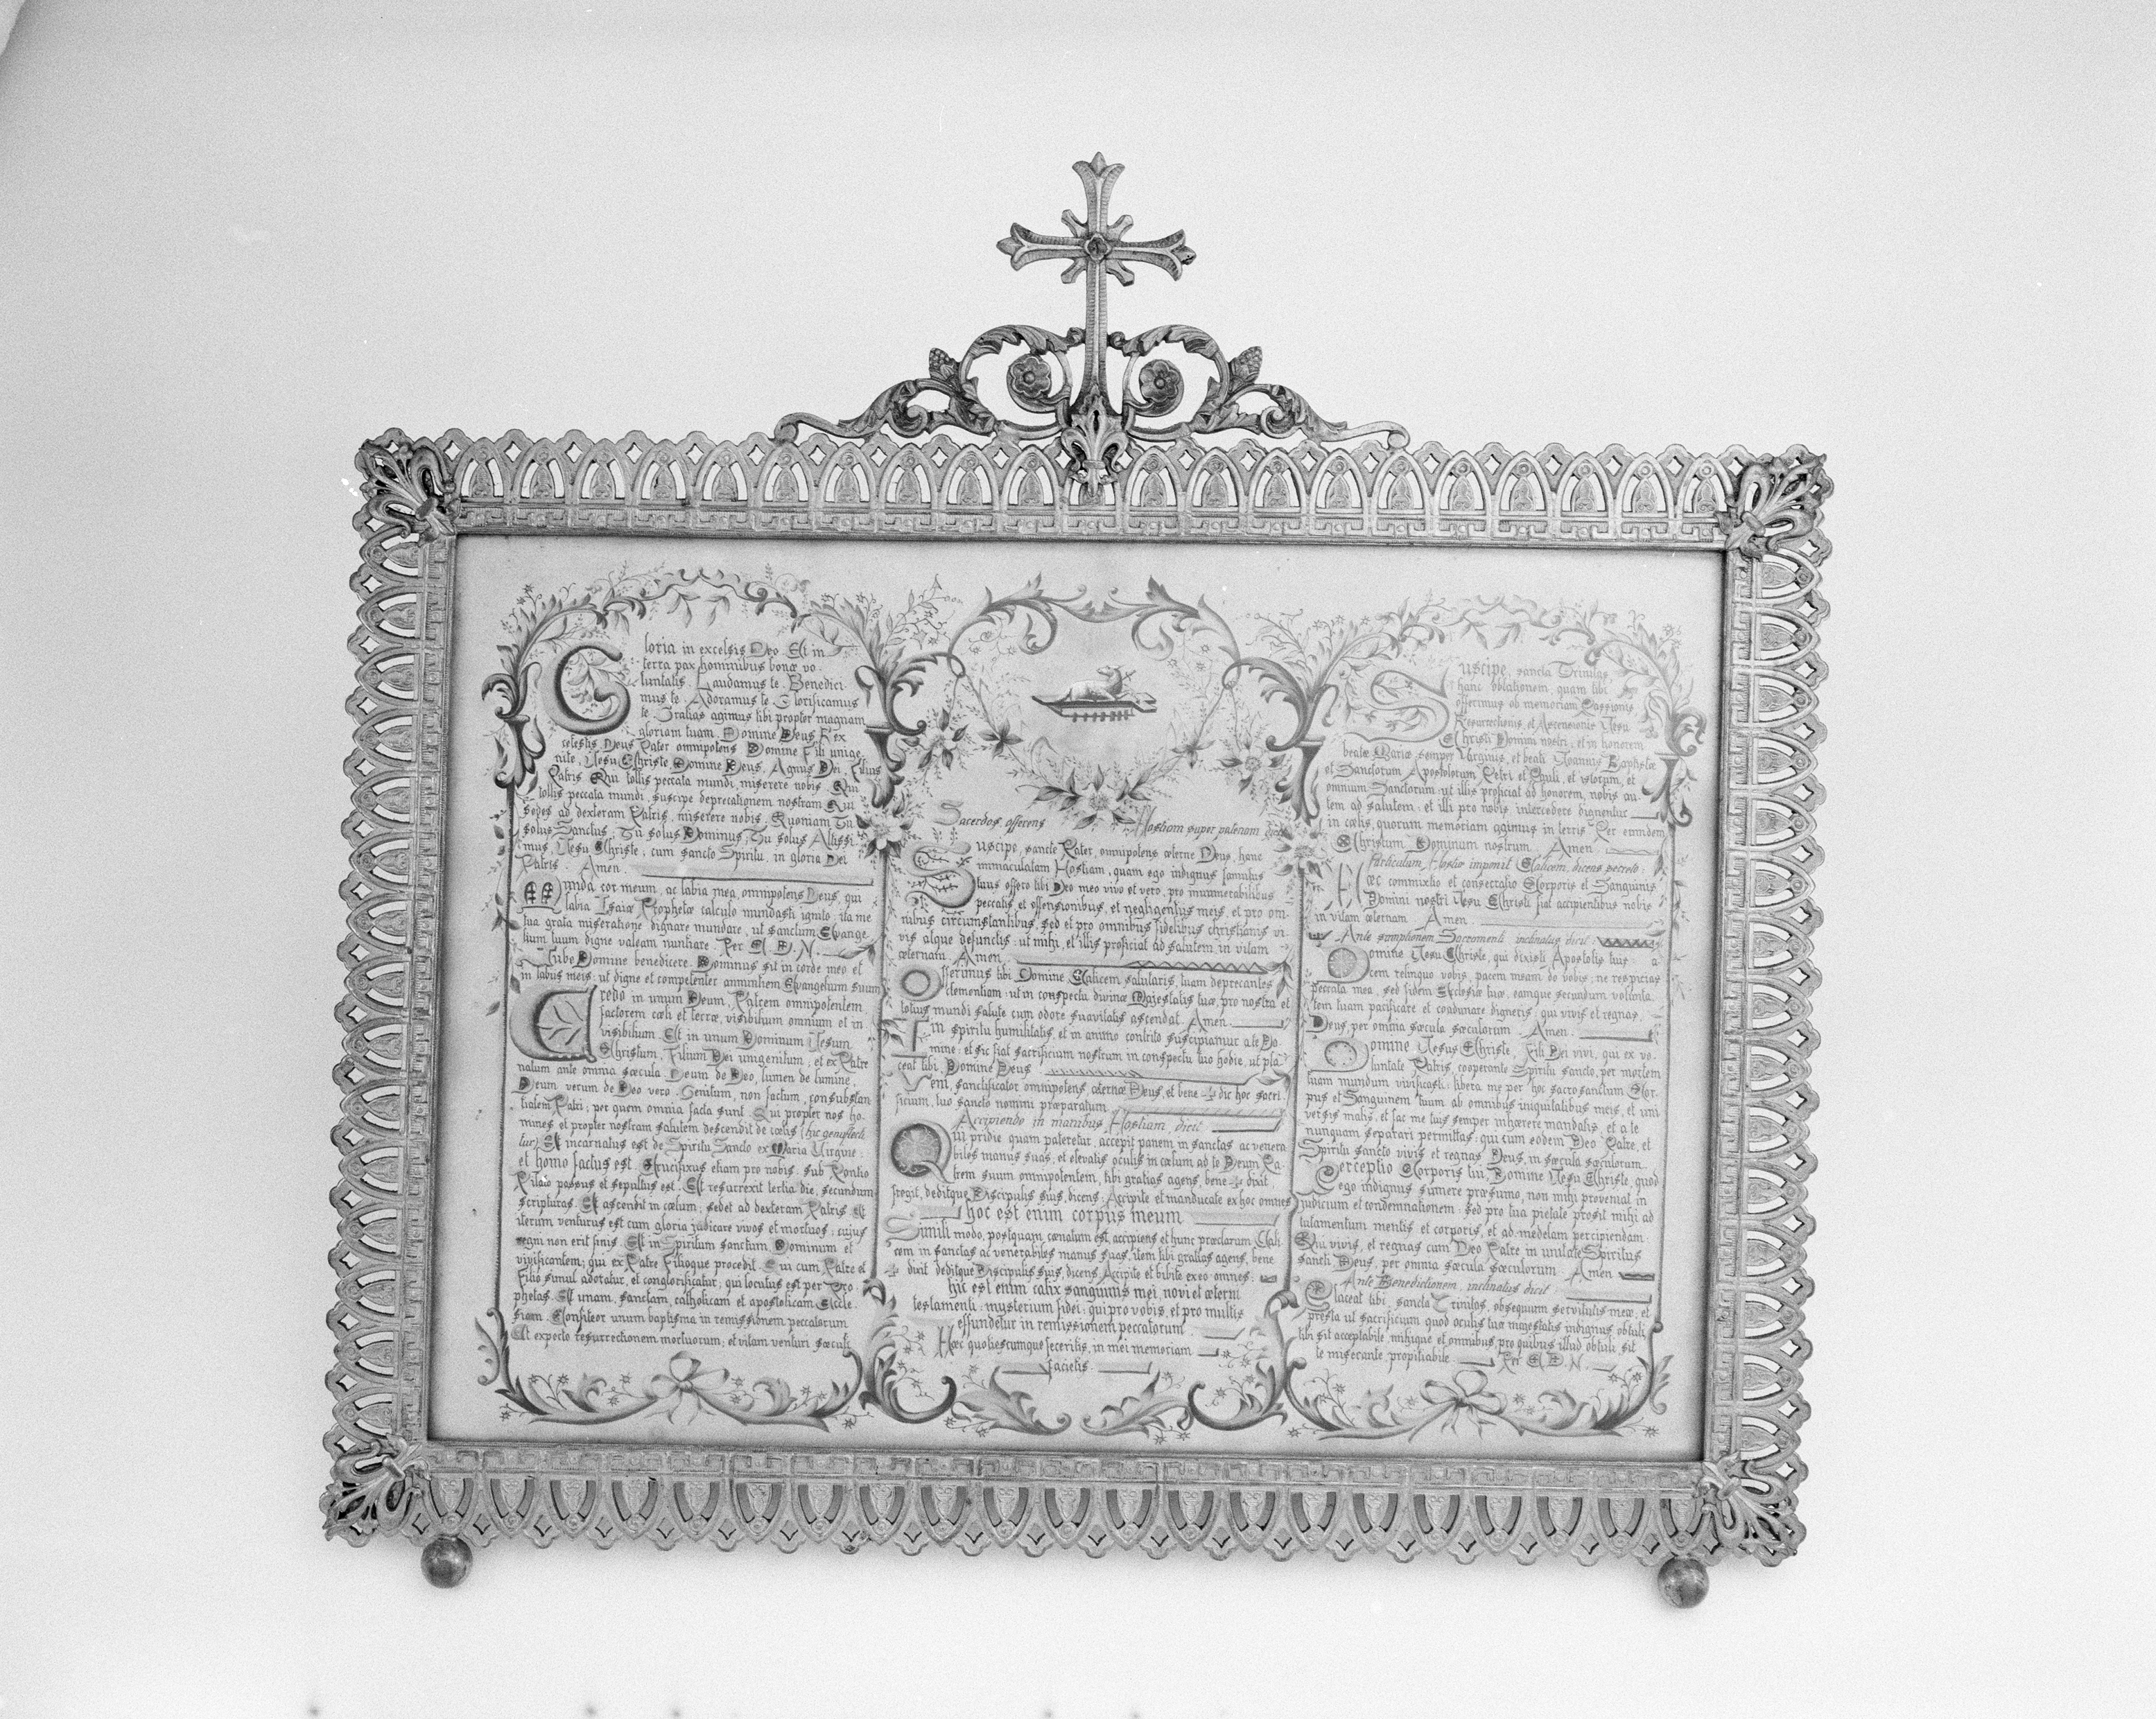 Gloria in excelsis Deo. Et in
terra pax hominibus bonæ vo-
luntatis. Laudamus te. Benedici-
mus te. Adoramus te. Glorificamus
te. Gratias agimus tibi propter magnam
gloriam tuam. Domine Deus Rex
celestis, Deus Pater omnipotens. Domine Fili unige-
nite, Jesu Christe. Domine Deus, Agnus Dei, Filius
Patris. Qui tollis peccata mundi, miserere nobis. Qui
tollis peccata mundi, suscipe deprecationem nostram. Qui
sedes ad dexteram Patris, miserere nobis. Quoniam Tu
solus Sanctus; Tu solus Dominus; Tu solus Altissi-
mus, Jesu Christe; cum Sancto Spiritu, in gloria Dei
Patris. Amen.
Munda cor meum, ac labia mea, omnipotens Deus, qui
labia Isaiæ Prophetæ calculo mundasti ignito: ita me
tua grata miseratione dignare mundare, ut sanctum Evange-
lium tuum digne valeam nuntiare. Per C. D. N.
Jube Domine benedicere. Dominus sit in corde meo et
in labiis meis: ut digne et competenter annuntiem Evangelium suum
Credo in unum Deum, Patrem omnipotentem
factorem cœli et terræ, visibilium omnium et in-
visibilium. Et in unum Dominum Jesum
Christum, Filium Dei unigenitum, et ex Patre
natum ante omnia sæcula. Deum de Deo, lumen de lumine,
Deum verum de Deo vero. Genitum, non factum, consubstan-
tialem Patri; per quem omnia facta sunt. Qui propter nos ho-
mines, et propter nostram salutem descendit de cœlis (hic genuflecti-
tur) Et incarnatus est de Spiritu Sancto ex Maria Virgine:
et homo factus est. Crucifixus etiam pro nobis, sub Pontio
Pilato passus et sepultus est. Et resurrexit tertia die, secundum
scripturas. Et ascendit in cœlum; sedet ad dexteram Patris. Et
iterum venturus est cum gloria judicare vivos et mortuos; cujus
regni non erit finis. Et in Spiritum Sanctum, Dominum et
vivificantem; qui ex Patre Filioque procedit. Qui cum Patre et
Filio simul adoratur, et conglorificatur; qui locutus est per Pro-
phetas. Et unam, sanctam, catholicam et apostolicam Eccle-
siam. Confiteor unum baptisma in remissionem peccatorum
Et expecto resurrectionem mortuorum; et vitam venturi sæculi
Sacerdos, offerens Hostiam super patenam dicit
Suscipe, sancte Pater, omnipotens æterne Deus, hanc
immaculatam Hostiam, quam ego indignus famulus
tuus offero tibi Deo meo vivo et vero, pro innumerabilibus
peccatis, et offensionibus, et negligentiis meis, et pro om-
nibus circumstantibus, sed et pro omnibus fidelibus christianis vi-
vis atque defunctis: ut mihi, et illis proficiat ad salutem, in vitam
æternam. Amen.
Offerimus tibi Domine, Calicem salutaris, tuam deprecantes
clementiam: ut in conspectu divinæ Majestatis tuæ, pro nostra et
totius mundi salute cum odore suavitatis ascendat. Amen.
In spiritu humilitatis, et in animo contrito suscipiamur a te Do-
mine: et sic fiat sacrificium nostrum in conspectu tuo hodie, ut pla-
ceat tibi, Domine Deus
Veni, sanctificator omnipotens, æterne Deus, et bene ✠ dic hoc sacri-
ficium, tuo sancto nomini præparatum
Accipiendo in manibus Hostiam, dicit
Qui pridie quam pateretur, accepit panem in sanctas ac venera-
biles manus suas, et elevatis oculis in cœlum ad te Deum Pa-
trem suum omnipotentem, tibi gratias agens, bene ✠ dixit
fregit, deditque Discipulis suis, dicens: Accipite et manducate ex hoc omnes
hoc est enim corpus meum
Simili modo, postquam cœnatum est, accipiens et hunc præclarum Cali-
cem in sanctas ac venerabiles manus suas, item tibi gratias agens, bene
✠ dixit deditque Discipulis suis, dicens: Accipite et bibite ex eo omnes:
hic est enim calix sanguinis mei, novi et æterni
testamenti: mysterium fidei: qui pro vobis, et pro multis
effundetur in remissionem peccatorum.
Hæc quotiescumque feceritis, in mei memoriam
facietis.
Suscipe, sancta Trinitas
hanc oblationem, quam tibi
offerimus ob memoriam Passionis
Resurrectionis, et Ascensionis Jesu
Christi Domini nostri, et in honorem
beatæ Mariæ semper Virginis, et beati Joannis Baptistæ
et Sanctorum Apostolorum Petri et Pauli, et istorum, et
omnium Sanctorum: ut illis proficiat ad honorem, nobis au-
tem ad salutem: et illi pro nobis intercedere dignentur
in cœlis, quorum memoriam agimus in terris. Per eumdem
Christum Dominum nostrum. Amen.
Particulam Hostiæ imponit Calicem, dicens secreto:
Hæc commixtio et consecratio Corporis et Sanguinis
Domini nostri Jesu Christi fiat accipientibus nobis
in vitam æternam. Amen.
Ante sumptionem Sacramenti inclinatus dicit:
Domine Jesu Christe, qui dixisti Apostolis tuis: a-
cem relinquo vobis, pacem meam do vobis: ne respicias
peccata mea, sed fidem Ecclesiæ tuæ, eamque secundum volunta-
tem tuam pacificare et coadunare digneris: qui vivis et regnas,
Deus, per omnia sæcula sæculorum. Amen.
Domine Jesu Christe, Fili Dei vivi, qui ex vo-
luntate Patris, cooperante Spiritu Sancto, per mortem
tuam mundum vivificasti: libera me per hoc sacrosanctum Cor-
pus et Sanguinem tuum ab omnibus iniquitatibus meis, et uni-
versis malis, et fac me tuis semper inhærere mandatis, et a te
nunquam separari permittas: qui cum eodem Deo Patre, et
Spiritu Sancto vivis et regnas Deus, in sæcula sæculorum.
Perceptio Corporis tui, Domine Jesu Christe, quod
ego indignus sumere præsumo, non mihi proveniat in
judicium et condemnationem: sed pro tua pietate prosit mihi ad
tutamentum mentis et corporis, et ad medelam percipiendam:
Qui vivis, et regnas cum Deo Patre in unitate Spiritus
Sancti Deus, per omnia sæcula sæculorum. Amen
Ante Benedictionem, inclinatus dicit:
Placeat tibi, sancta Trinitas, obsequium servitutis meæ, et
præsta ut sacrificium quod oculis tuæ majestatis indignus obtuli
tibi sit acceptabile, mihique et omnibus, pro quibus illud obtuli, sit
te miserante, propitiabile. Per C. D. N.